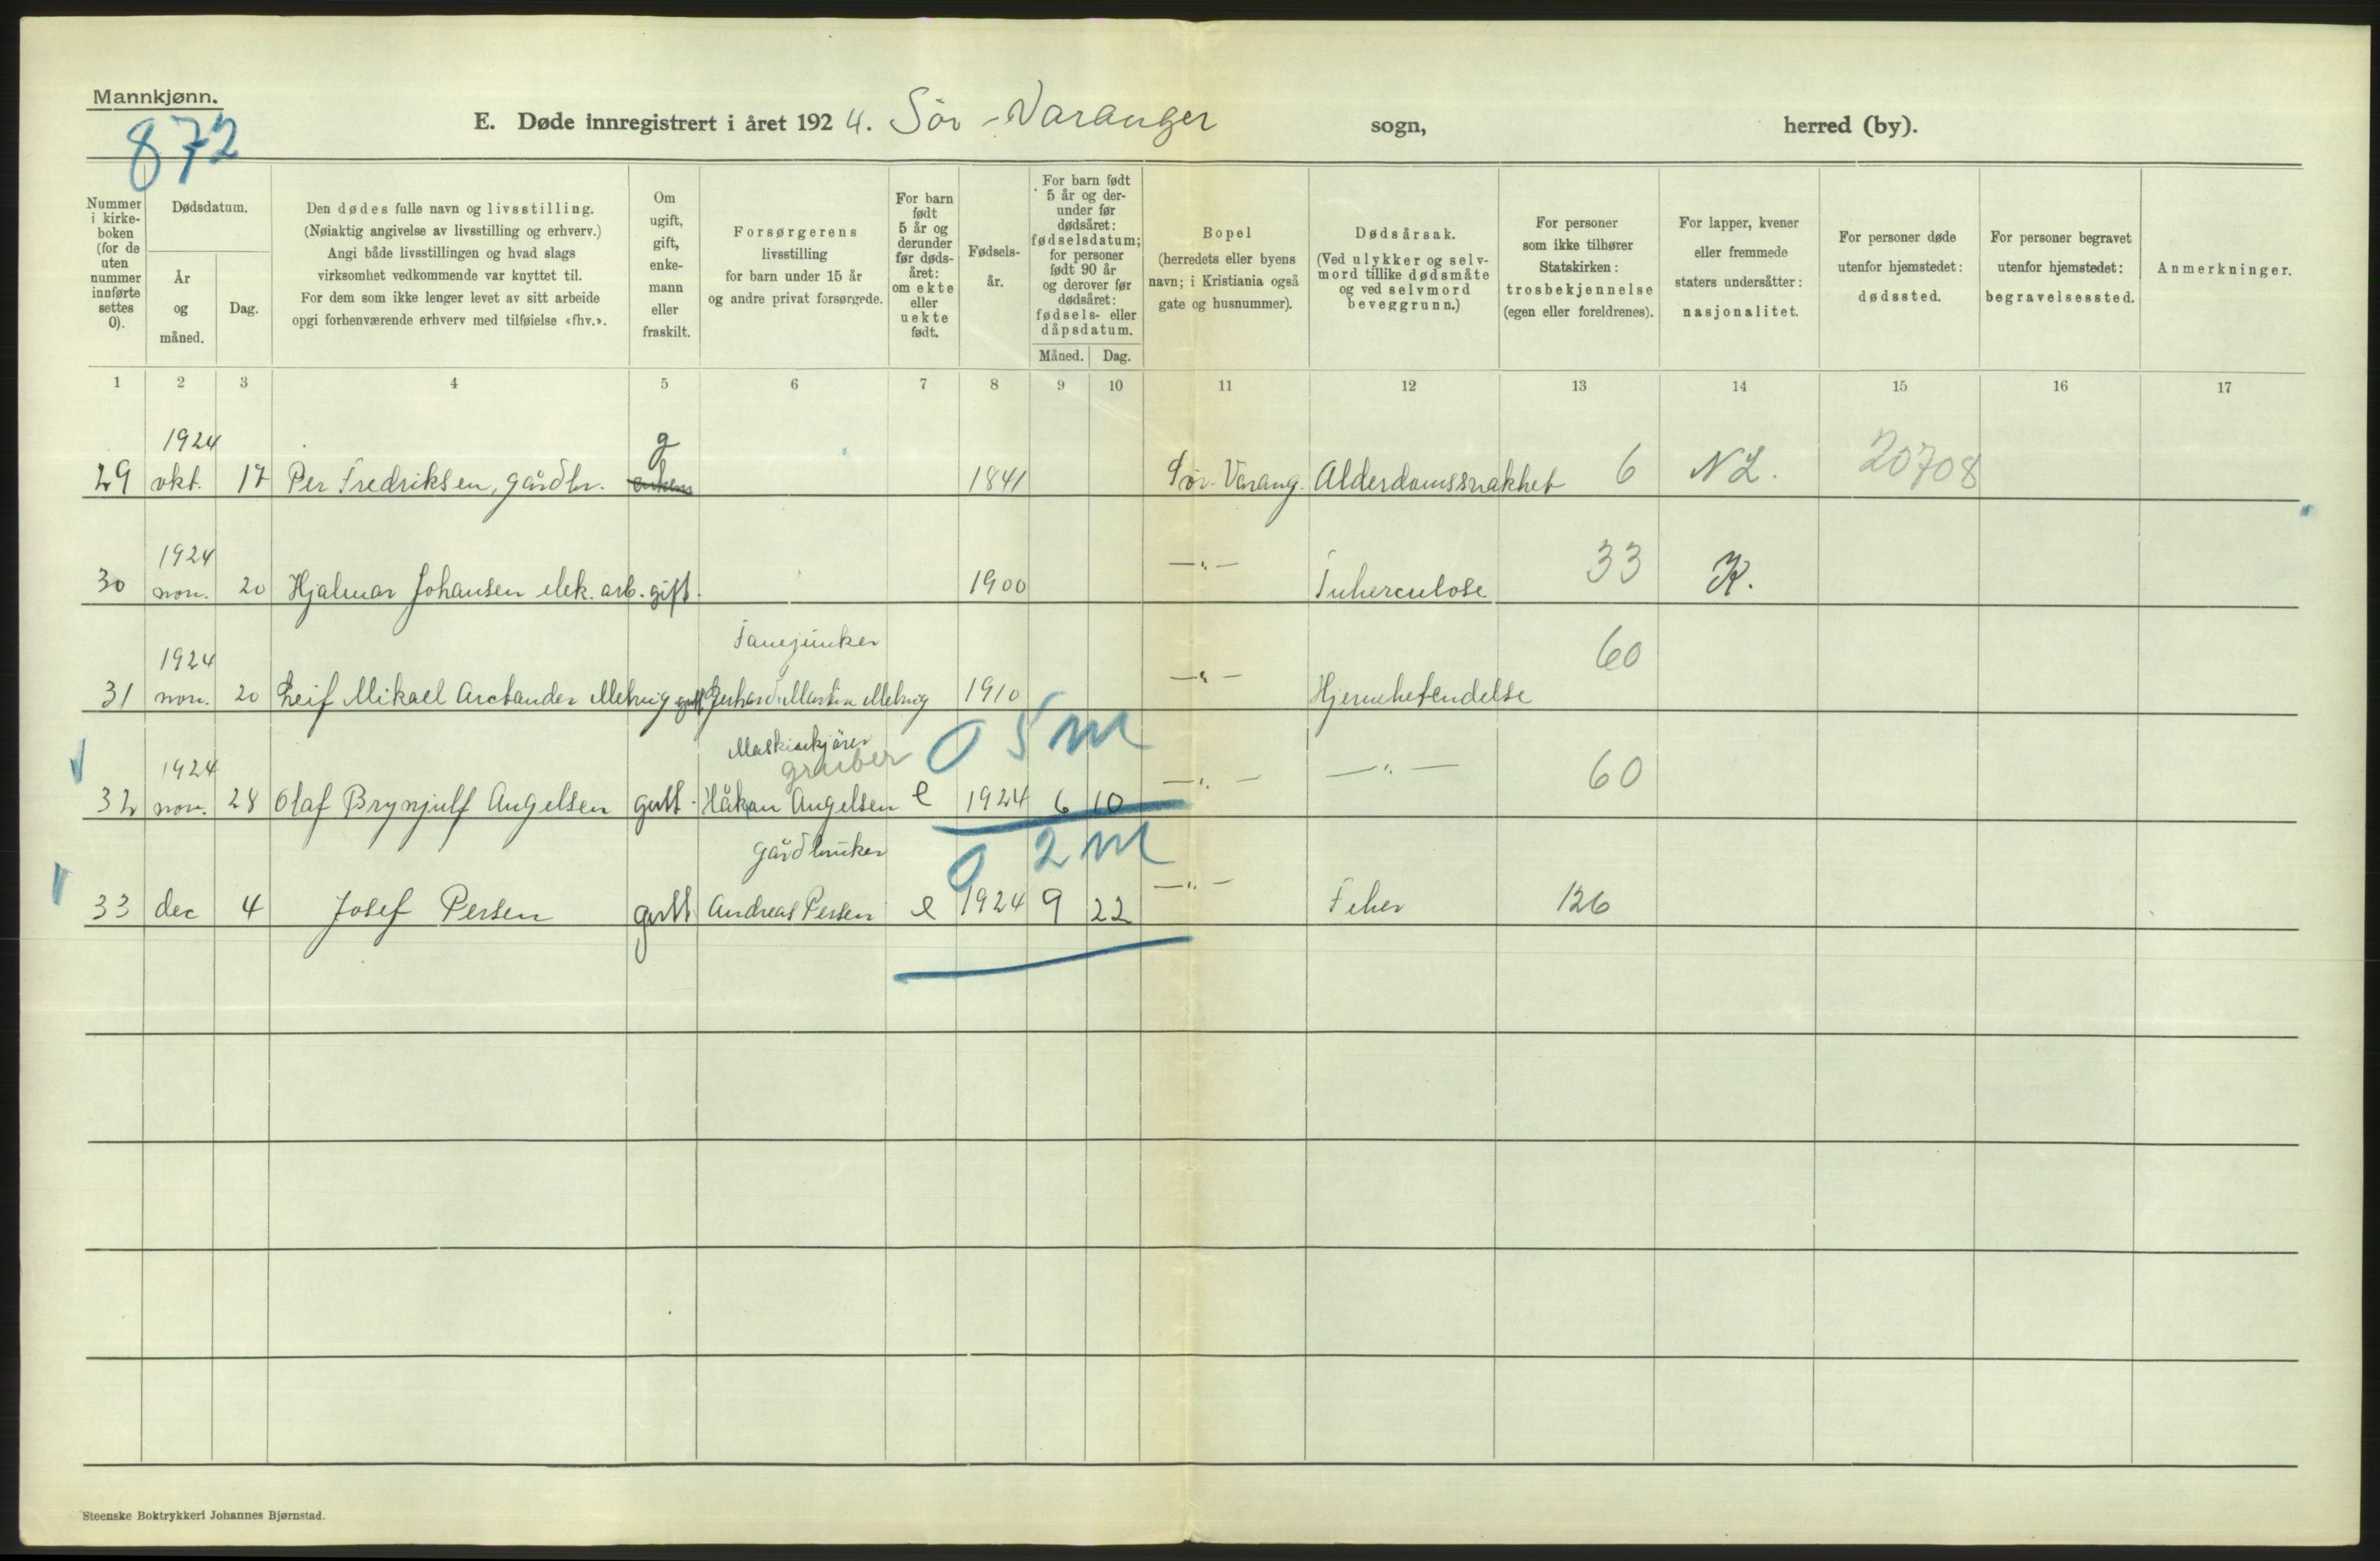 Mannkjønn.
872
E. Døde innregistrert i året 1924. Sör-Varanger sogn, herred (by).
Nummer i kirke- boken (for de uten nummer innførte settes 0).
Dødsdatum.
År og måned.
Dag.
Den dødes fulle navn og livsstilling.
(Nøiaktig angivelse av livsstilling og erhverv.)
Angi både livsstillingen og hvad slags
virksomhet vedkommende var knyttet til.
For dem som ikke lenger levet av sitt arbeide
opgi forhenværende erhverv med tilføielse «fhv.».
Om ugift, gift, enke- mann eller fraskilt.
Forsørgerens
livsstilling
for barn under 15 år
og andre privat forsørgede.
For barn født 5 år og derunder før døds- året: om ekte eller uekte født.
Fødsels- år.
For barn født 5 år og der- under før dødsåret: fødselsdatum; for personer født 90 år og derover før dødsåret: fødsels- eller dåpsdatum.
Måned. Dag.
Bopel
(herredets eller byens
navn; i Kristiania også
gate og husnummer).
Dødsårsak.
(Ved ulykker og selv-
mord tillike dødsmåte
og ved selvmord
beveggrunn.)
For personer
som ikke tilhører
Statskirken:
trosbekjennelse
(egen eller foreldrenes).
For lapper, kvener
eller fremmede
staters undersåtter:
nasjonalitet.
For personer døde
utenfor hjemstedet:
dødssted.
For personer begravet
utenfor hjemstedet:
begravelsessted.
Anmerkninger.
1 2 3 4 5 6 7 8 9 10 11 12 13 14 15 16 17
1924 g
29 okt. 17 Per Fredriksen, gårdbr. 1841 Sör-Varang. Alderdomssvakhet 6 NL. 20708
1924
30 nov. 20 Hjalmar Johansen elek. arb. gift. 1900 —"— Tuberculose 33 K.
1924
31 nov. 20 Leif Mikael Arctander gutt Gerhard Martin 1910 —"— Hjernebetendelse 60
Maskinkjörer
1924 gruber 0 5 m
32 nov. 28 Olaf Brynjulf Angelsen gutt. Håkon Angelsen e 1924 6 10 —"— —"— 60
Gårdbruker 0 2 m
33 dec 4 Josef Persen gutt Andreas Persen e 1924 9 22 —"— Feber 126
Steenske Boktrykkeri Johannes Bjørnstad.